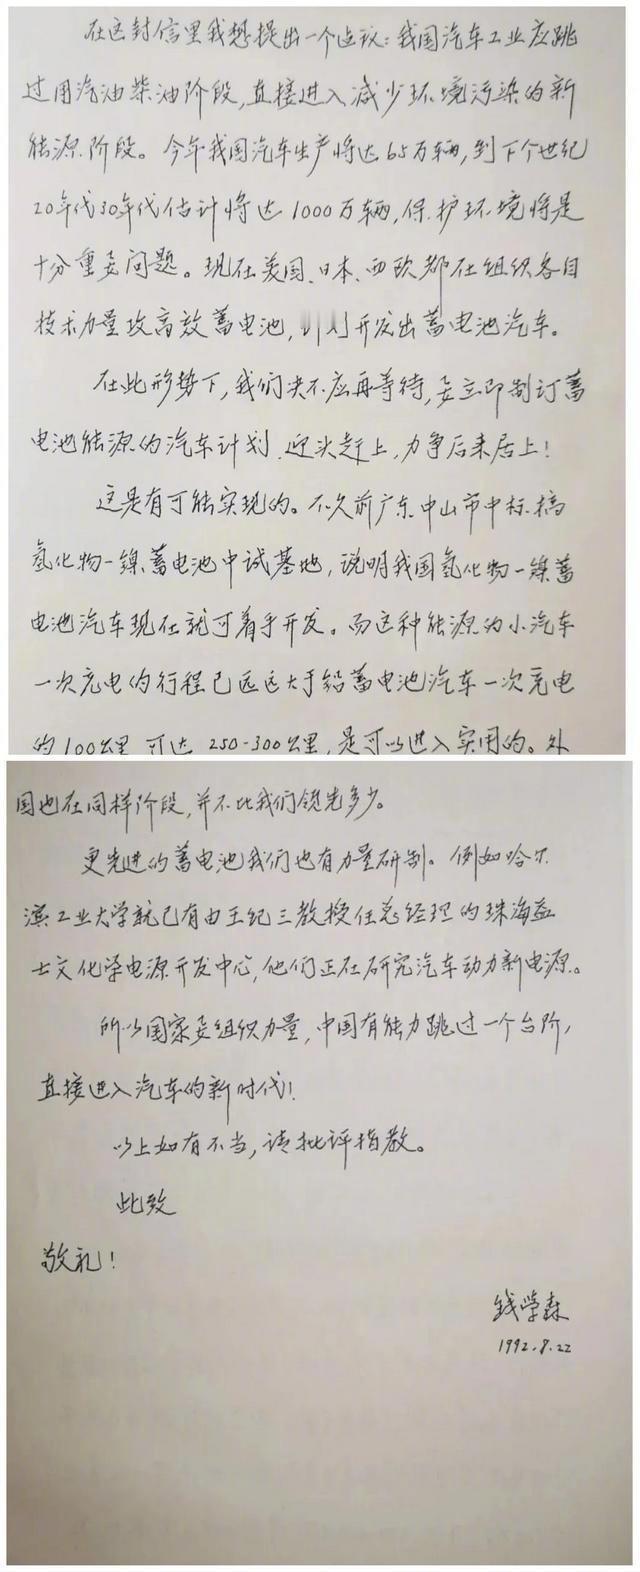 在这封信里我想提出一个建议:我国汽车工业应跳
过用汽油柴油阶段,直接进入减少环境污染的新
能源阶段。今年我国汽车生产将达65万辆,到下个世纪
20年代30年代估计将达1000万辆,保护环境将是
十分重要问题。现在美国、日本、西欧都在组织各自
技术力量攻高效蓄电池,计划开发出蓄电池汽车。
在此形势下,我们决不应再等待,要立即制订蓄
电池能源的汽车计划,迎头赶上,力争后来居上!
这是有可能实现的。不久前广东中山市中标搞
氢化物—镍蓄电池中试基地,说明我国氢化物—镍蓄
电池汽车现在就可着手开发。而这种能源的小汽车
一次充电的行程已远远大于铅蓄电池汽车一次充电
的100公里,可达250-300公里,是可以进入实用的。外
国也在同样阶段,并不比我们领先多少。
更先进的蓄电池我们也有力量研制。例如哈尔
滨工业大学就已有由王纪三教授任总经理的珠海益
士文化学电源开发中心,他们正在研究汽车动力新电源。
所以国家要组织力量,中国有能力跳过一个台阶,
直接进入汽车的新时代!
以上如有不当,请批评指教。
此致
敬礼!
钱学森
1992.8.22